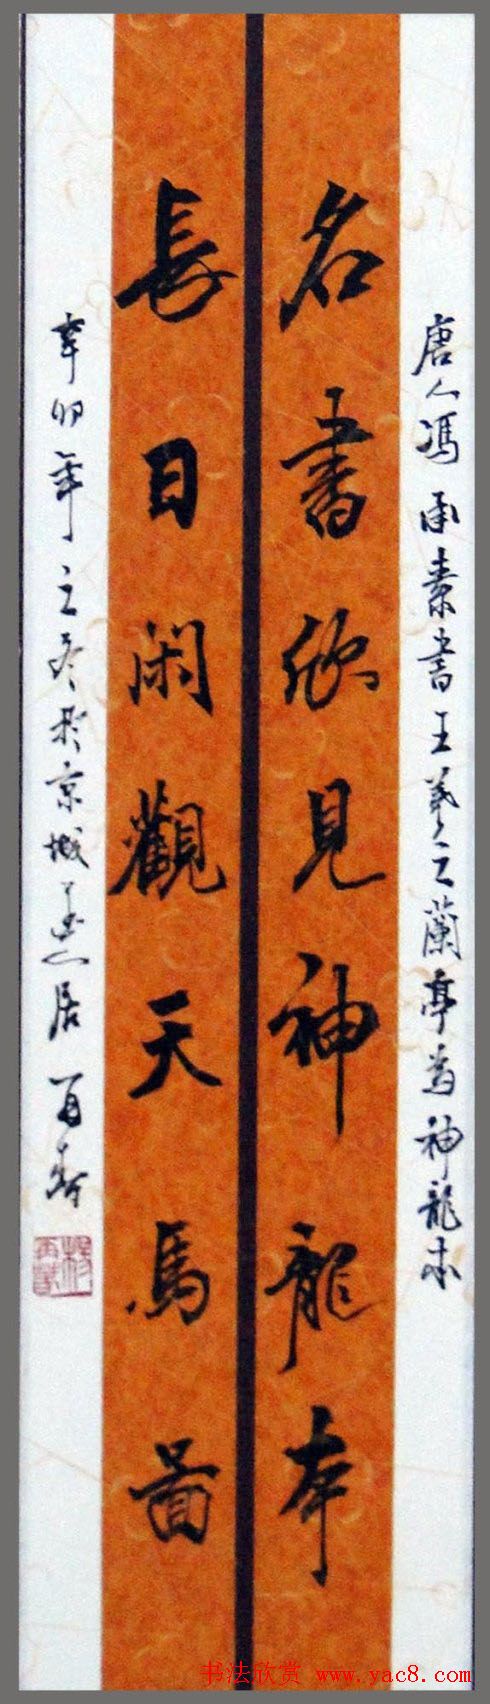 唐人馮承素書王羲之蘭亭為神龍本
名書欣見神龍本
長日閑觀天馬圖
辛卯年之冬於京城居 再春
书法欣赏 www.yac8.com